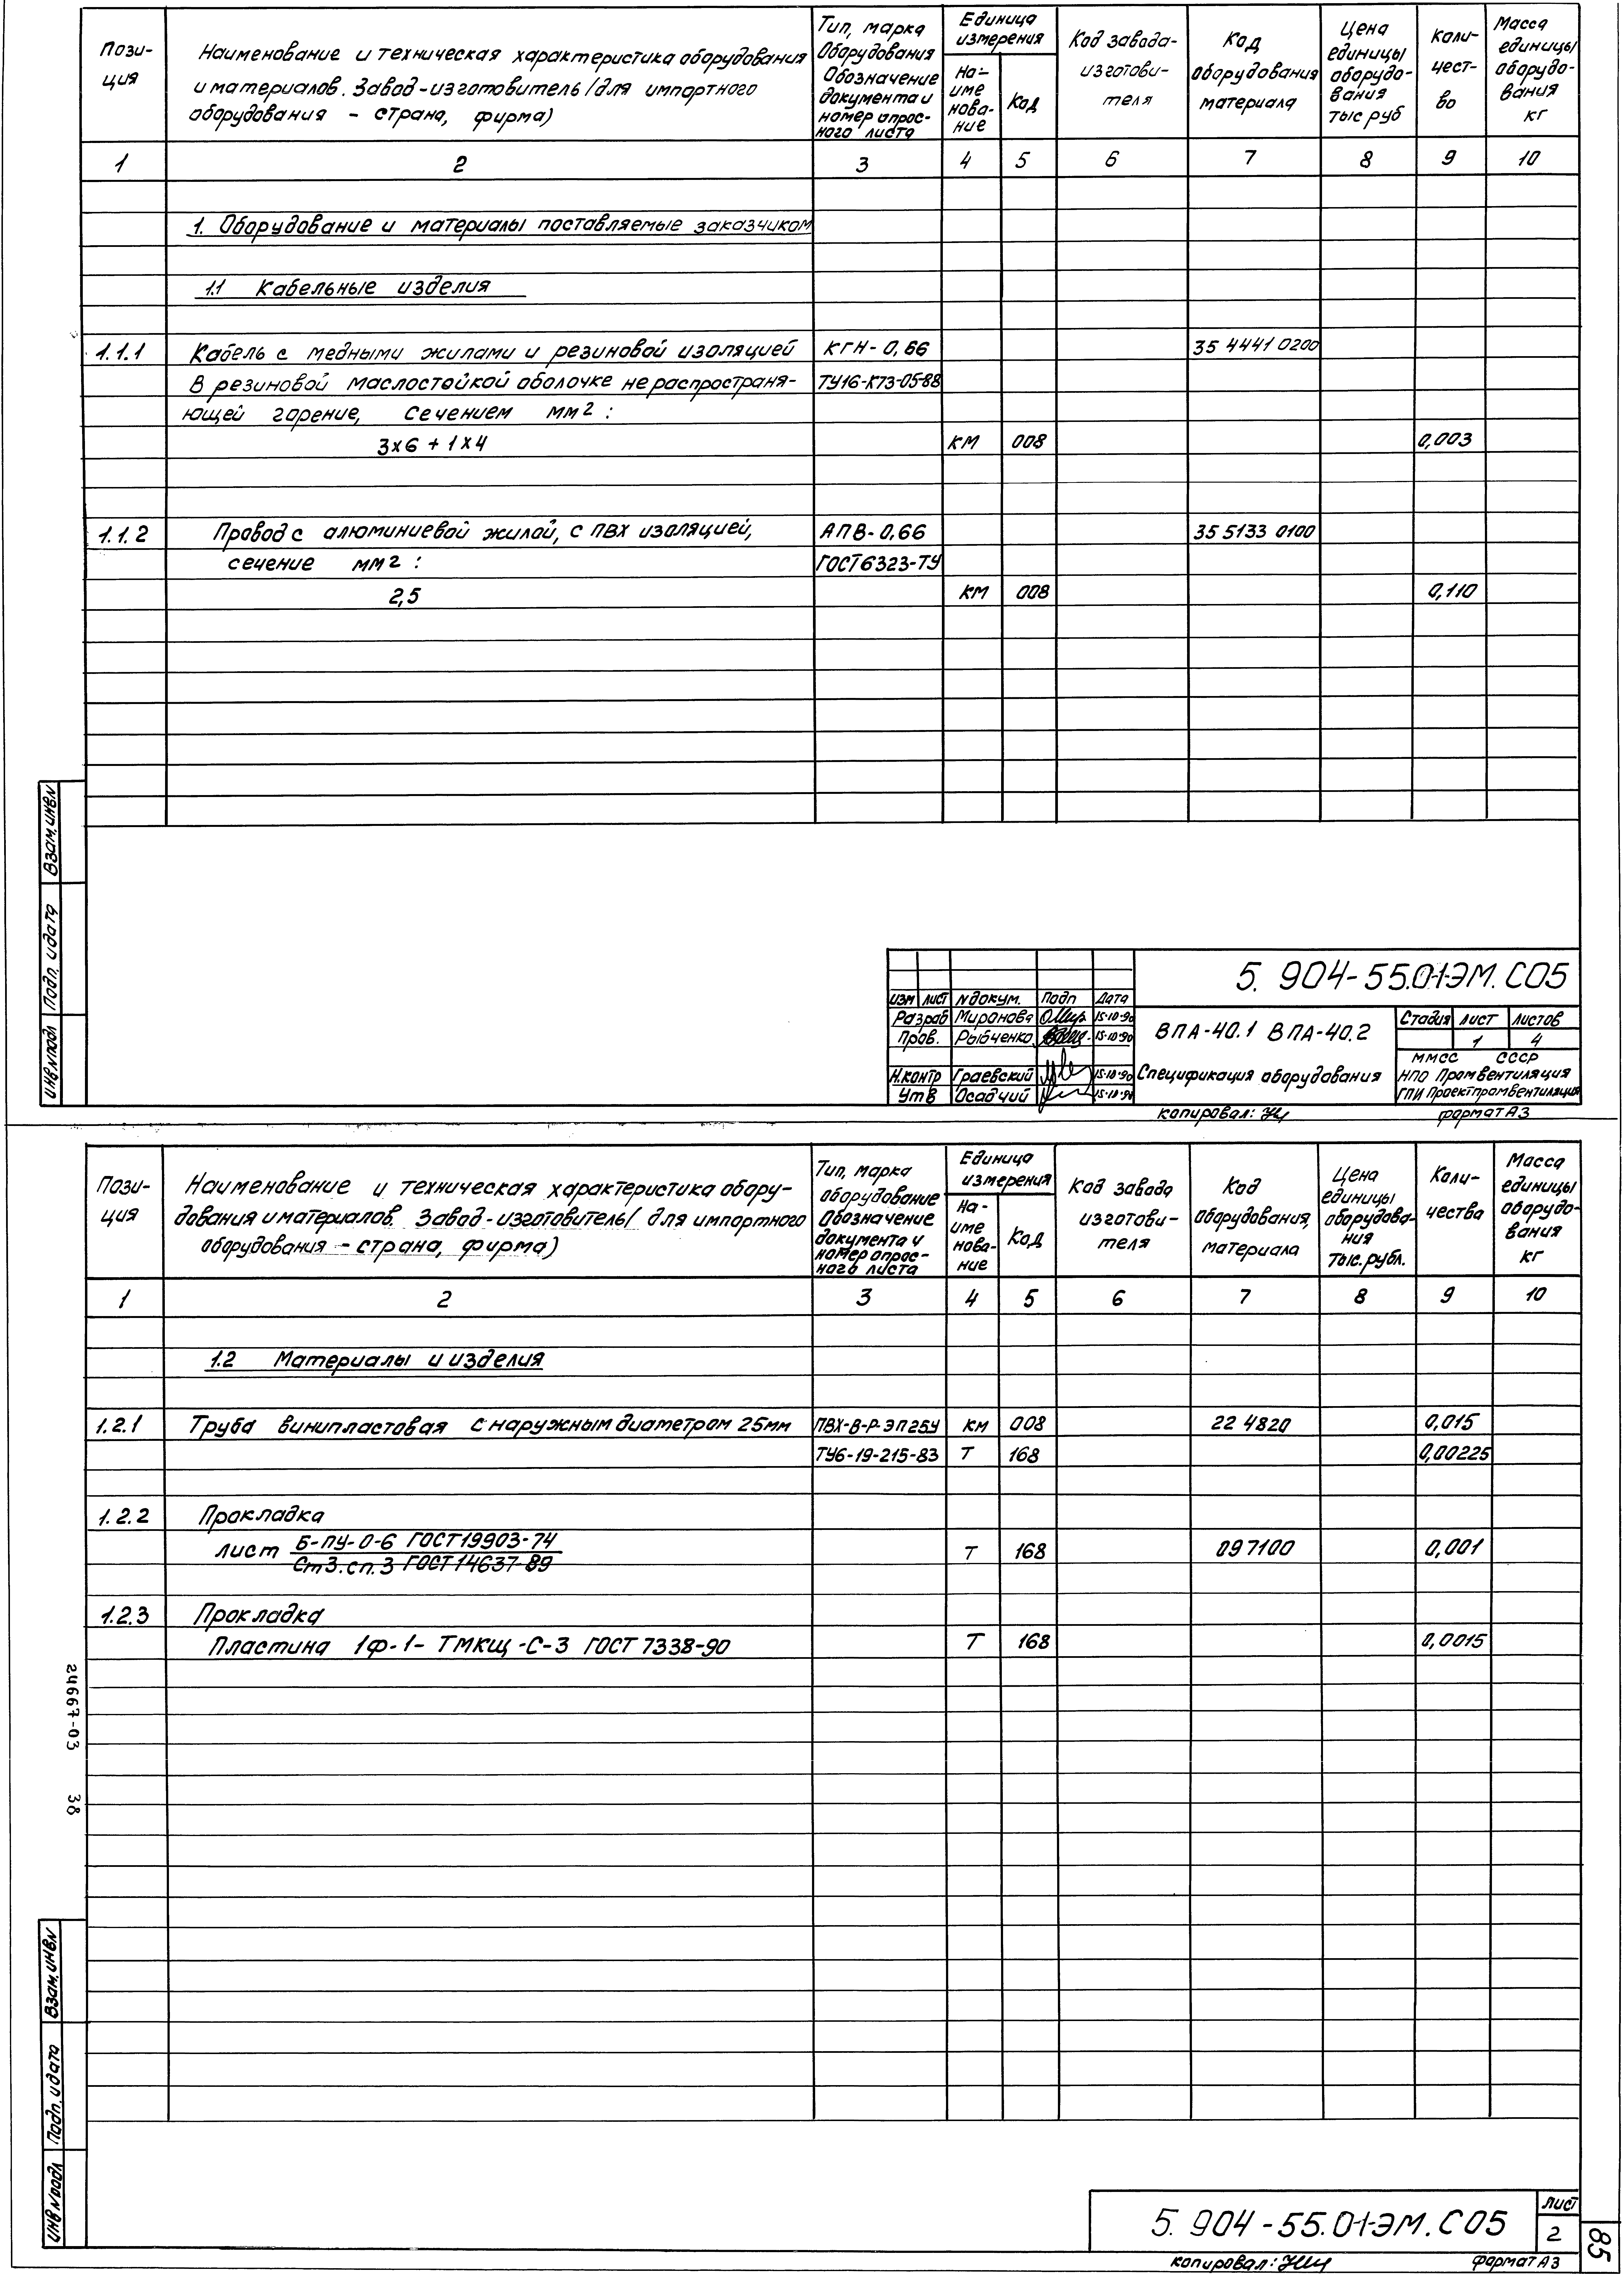 Пози-
ция
Наименование и техническая характеристика оборудования
и материалов. Завод-изготовитель /для импортного
оборудования - страна, фирма)
Тип, марка
Оборудования
Обозначение
документа и
номер опрос-
ного листа
Единица
измерения
На-
име
нова-
ние
Код
Код завода-
изготови-
теля
Код
оборудования
материала
Цена
единицы
оборудо-
вания
тыс руб
Коли-
чест-
во
Масса
единицы
оборудо-
вания
кг
1 2 3 4 5 6 7 8 9 10
1. Оборудование и материалы поставляемые заказчиком
1.1 Кабельные изделия
1.1.1 Кабель с медными жилами и резиновой изоляцией КГН-0,66 35 4441 0200
в резиновой маслостойкой оболочке не распространя- ТУ16-К73-05-88
ющей горение, сечением мм2 :
3х6 + 1х4 км 008 0,003
1.1.2 Провод с алюминиевой жилой, с ПВХ изоляцией, АПВ-0,66 35 5133 0100
сечение мм2 : ГОСТ6323-ТУ
2,5 км 008 0,110
Взам.инв№
Подп. и дата
Инв№подл
5. 904-55.01-ЭМ.СО5
Изм Лист №докум. Подп Дата
Разраб Миронова 15.10.90
Пров. Рыбченко 15.10.90
Н.контр Граевский 15.10.90
Утв Осадчий 15.10.90
ВПА-40.1 ВПА-40.2
Спецификация оборудования
Стадия Лист Листов
1 4
ММСС СССР
НПО Промвентиляция
ГПИ Проектпромвентиляция
копировал:
формат А3
Пози-
ция
Наименование и техническая характеристика обору-
дования и материалов. Завод-изготовитель/ для импортного
оборудования - страна, фирма)
Тип, марка
оборудование
Обозначение
документа и
номер опрос-
ного листа
Единица
измерения
На-
име
нова-
ние
Код
Код завода
изготови-
теля
Код
оборудования,
материала
Цена
единицы
оборудова-
ния
тыс.рубл.
Коли-
чества
Масса
единицы
оборудо-
вания
кг
1 2 3 4 5 6 7 8 9 10
1.2 Материалы и изделия
1.2.1 Труба винипластовая с наружным диаметром 25мм ПВХ-В-Р-ЭП25У км 008 22 4820 0,015
ТУ6-19-215-83 т 168 0,00225
1.2.2 Прокладка
лист Б-ПУ-О-6 ГОСТ19903-74
Ст3.сп.3 ГОСТ14637-89
т 168 097100 0,001
1.2.3 Прокладка
Пластина 1ф-1- ТМКЩ-С-3 ГОСТ 7338-90 т 168 0,0015
24667-03 38
Взам.инв№
Подп. и дата
Инв№подл
5. 904-55.01-ЭМ.СО5
Лист
2
копировал:
формат А3
85